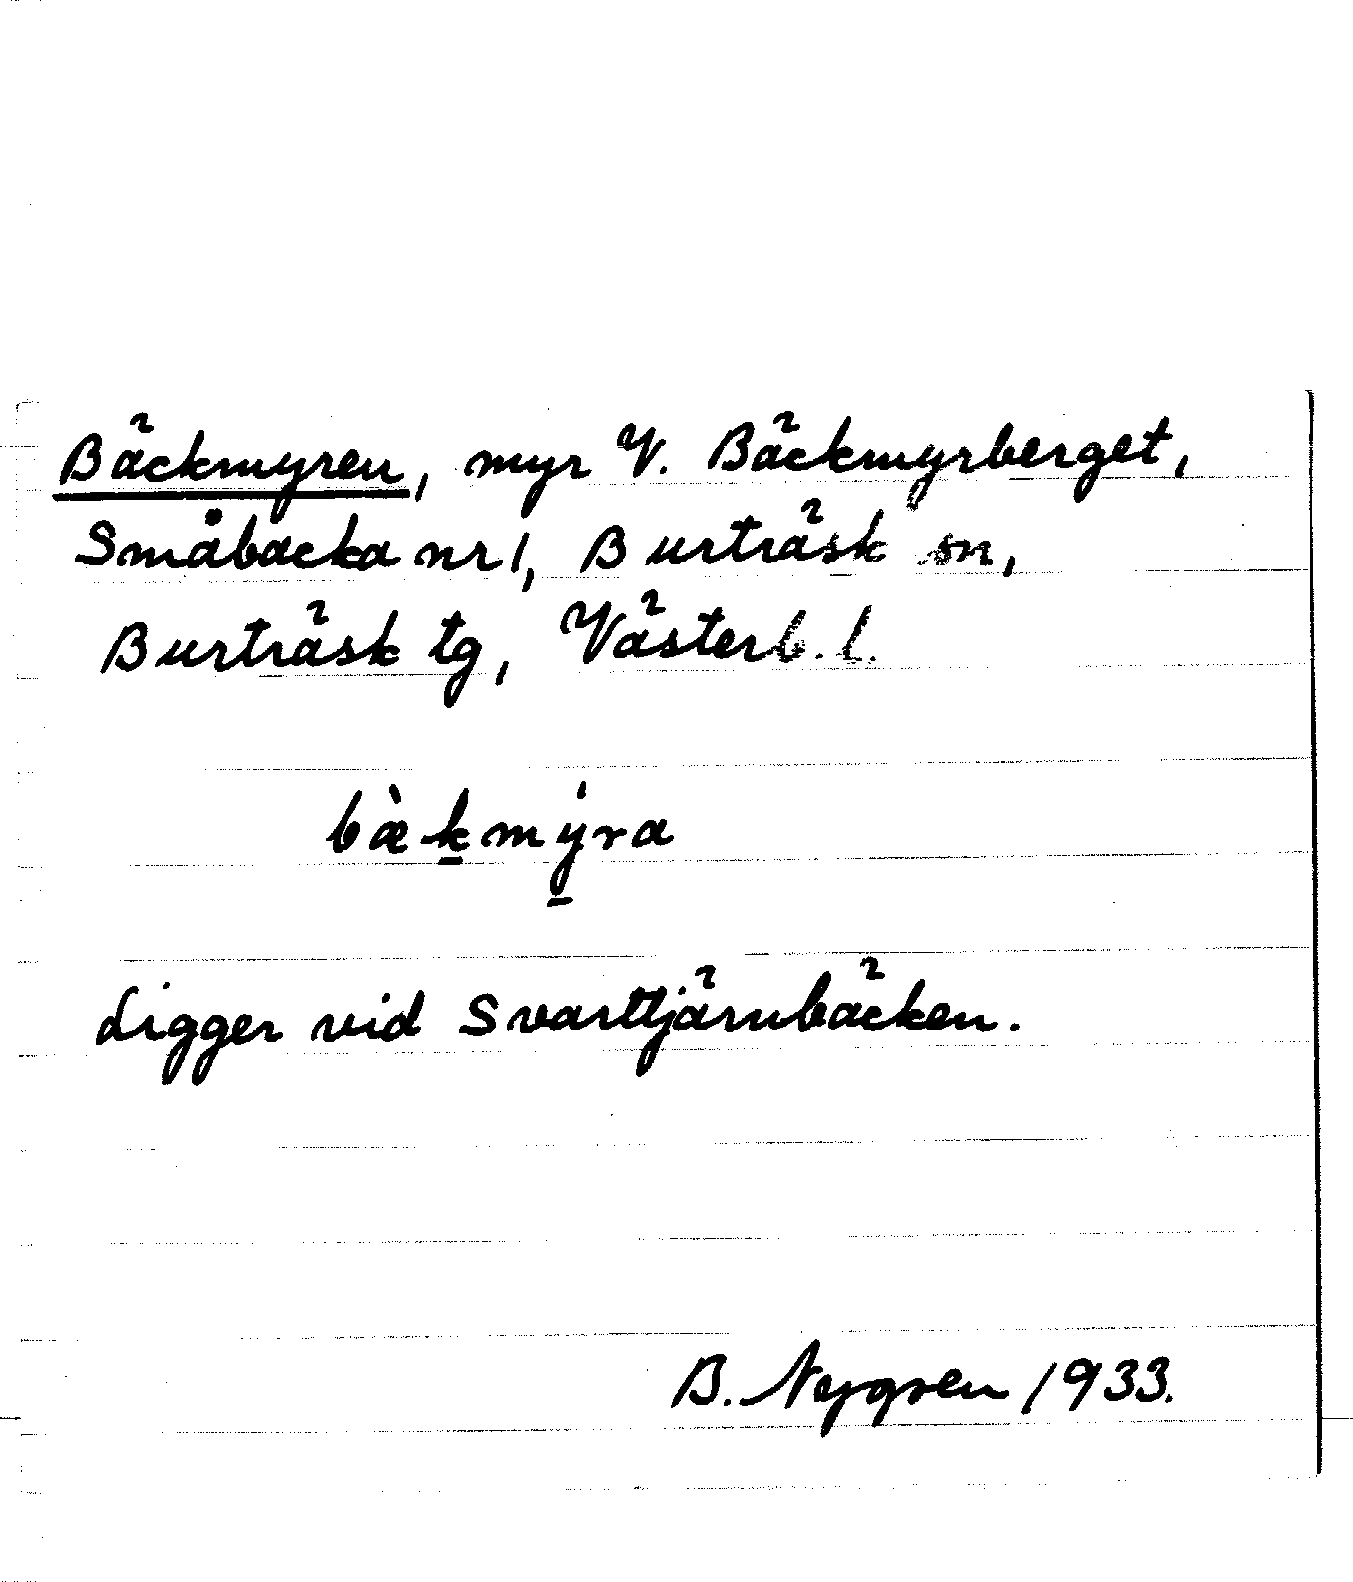 Bäckmyren, myr V. Bäckmyrberget,
Småbacka nr 1, Burträsk sn,
Burträsk tg, Västerb. l.
bæ̀k̲mý̲ra
Ligger vid Svarttjärnbäcken.
B. Nygren 1933.